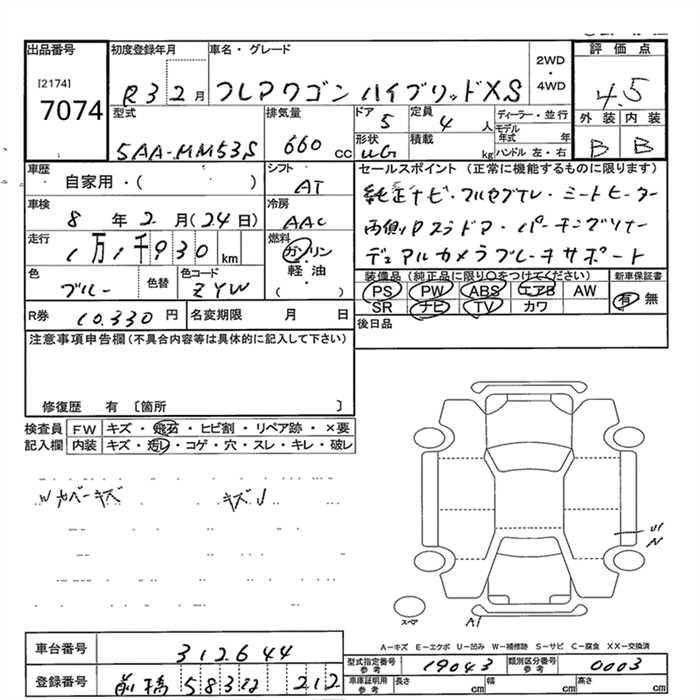 出品番号
[2174]
7074
初度登録年月
R3 2月
車名・グレード
フレアワゴン ハイブリッドXS
2WD
・
4WD
評価点
4.5
外装 内装
B B
型式
5AA-MM53S
排気量
660 cc
ドア
5
定員
4 人
形状
UG
積載
kg
ディーラー・並行
モデル
年式 年
ハンドル 左・右
車歴
自家用・( )
シフト
AT
セールスポイント (正常に機能するものに限ります)
純正ナビ・フルセグTV・シートヒーター
両側Pスラドア・パーキングソナー
デュアルカメラブレーキサポート
車検
8年2月(24日)
冷房
AAC
走行
1万1千930km
燃料
ガソリン
・
軽油
( ・ )
色
ブルー
色替
色コード
ZYW
装備品 (純正品に限り○をつけてください)
PS PW ABS エアB AW
SR ナビ TV カワ
新車保証書
有 無
R券 10,330円
名変期限 月 日
後日品
注意事項申告欄(不具合内容等は具体的に記入して下さい)
修復歴 有 〔箇所 〕
検査員 FW キズ・飛石・ヒビ割・リペア跡・×要
記入欄 内装 キズ・汚レ・コゲ・穴・スレ・キレ・破レ
カバーキズ
キズ
A1
A-キズ E-エクボ U-凹み W-補修跡 S-サビ C-腐食 XX-交換済
車台番号 312644
登録番号 前橋 583 212
型式指定番号
参考
19043
類別区分番号
参考
0003
車庫証明用
参考
長さ cm 幅 cm 高さ cm